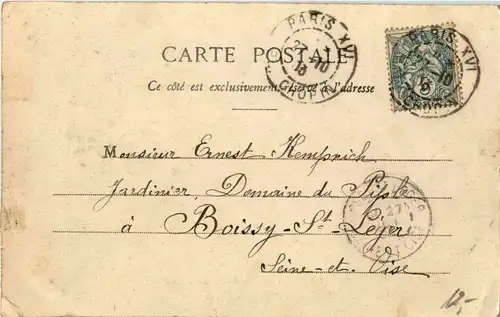 PARIS XVI
CARTE POSTALE
Ce côté est exclusivement réservé à l'adresse
PARIS XVI
Monsieur Ernest Kempnich
Jardinier, Domaine du Piple
à Boissy-St-Léger
Seine-et-Oise
12,-